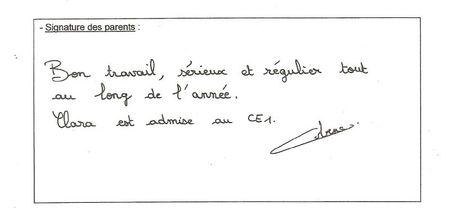 - Signature des parents :
Bon travail, sérieux et régulier tout
au long de l'année.
Clara est admise au CE1.